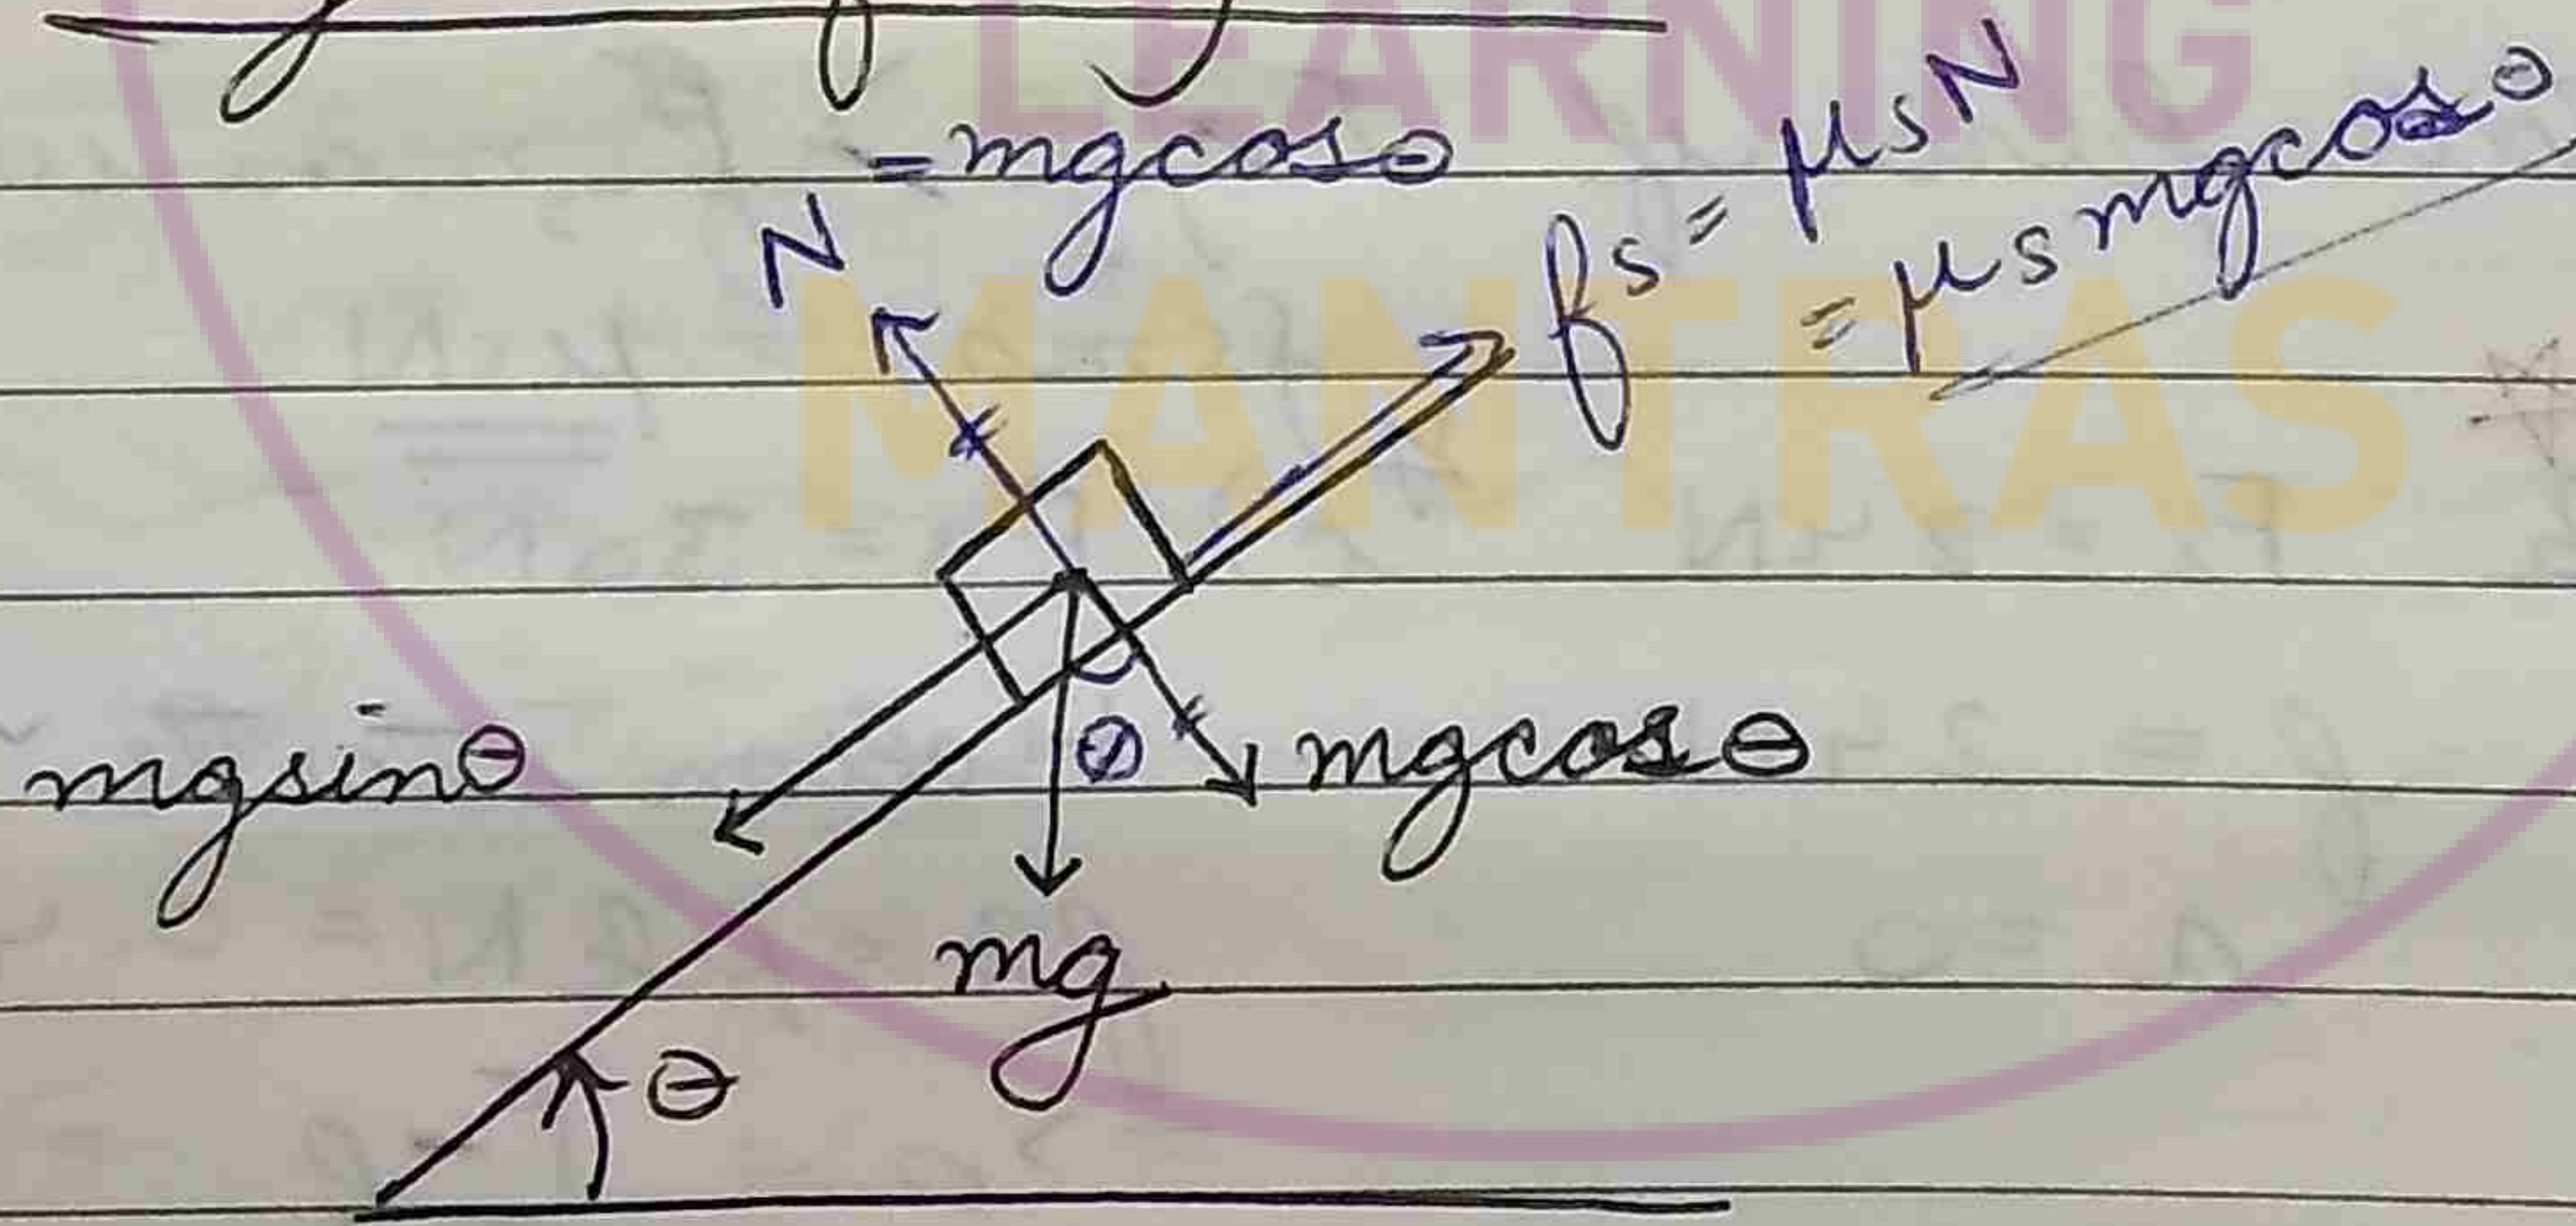 LEARNING
MANTRAS
N = mgcosθ
fs = μsN
= μs mgcosθ
mgsinθ
θ
mgcosθ
mg
θ